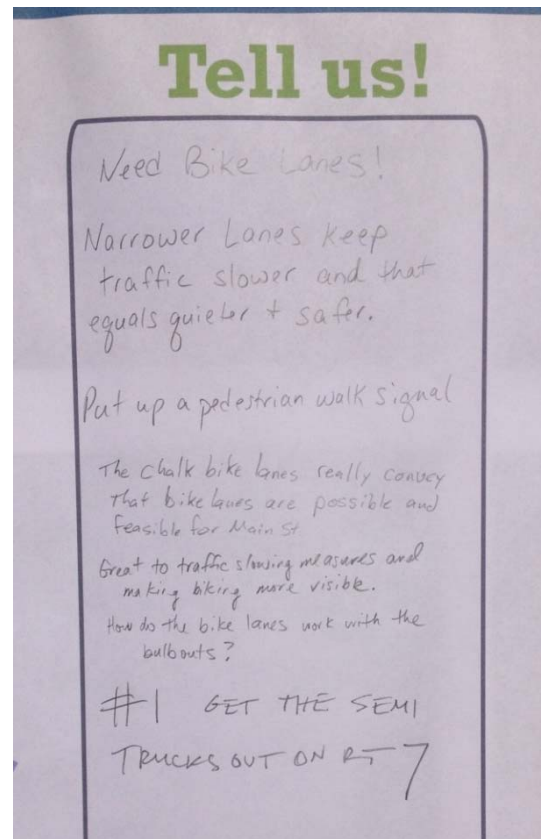 Tell us!
Need Bike Lanes!
Narrower Lanes keep
traffic slower and that
equals quieter + safer.
Put up a pedestrian walk signal
The chalk bike lanes really convey
that bike lanes are possible and
feasible for Main St
Great to traffic slowing measures and
making biking more visible.
How do the bike lanes work with the
bulbouts?
#1 GET THE SEMI
TRUCKS OUT ON RT 7